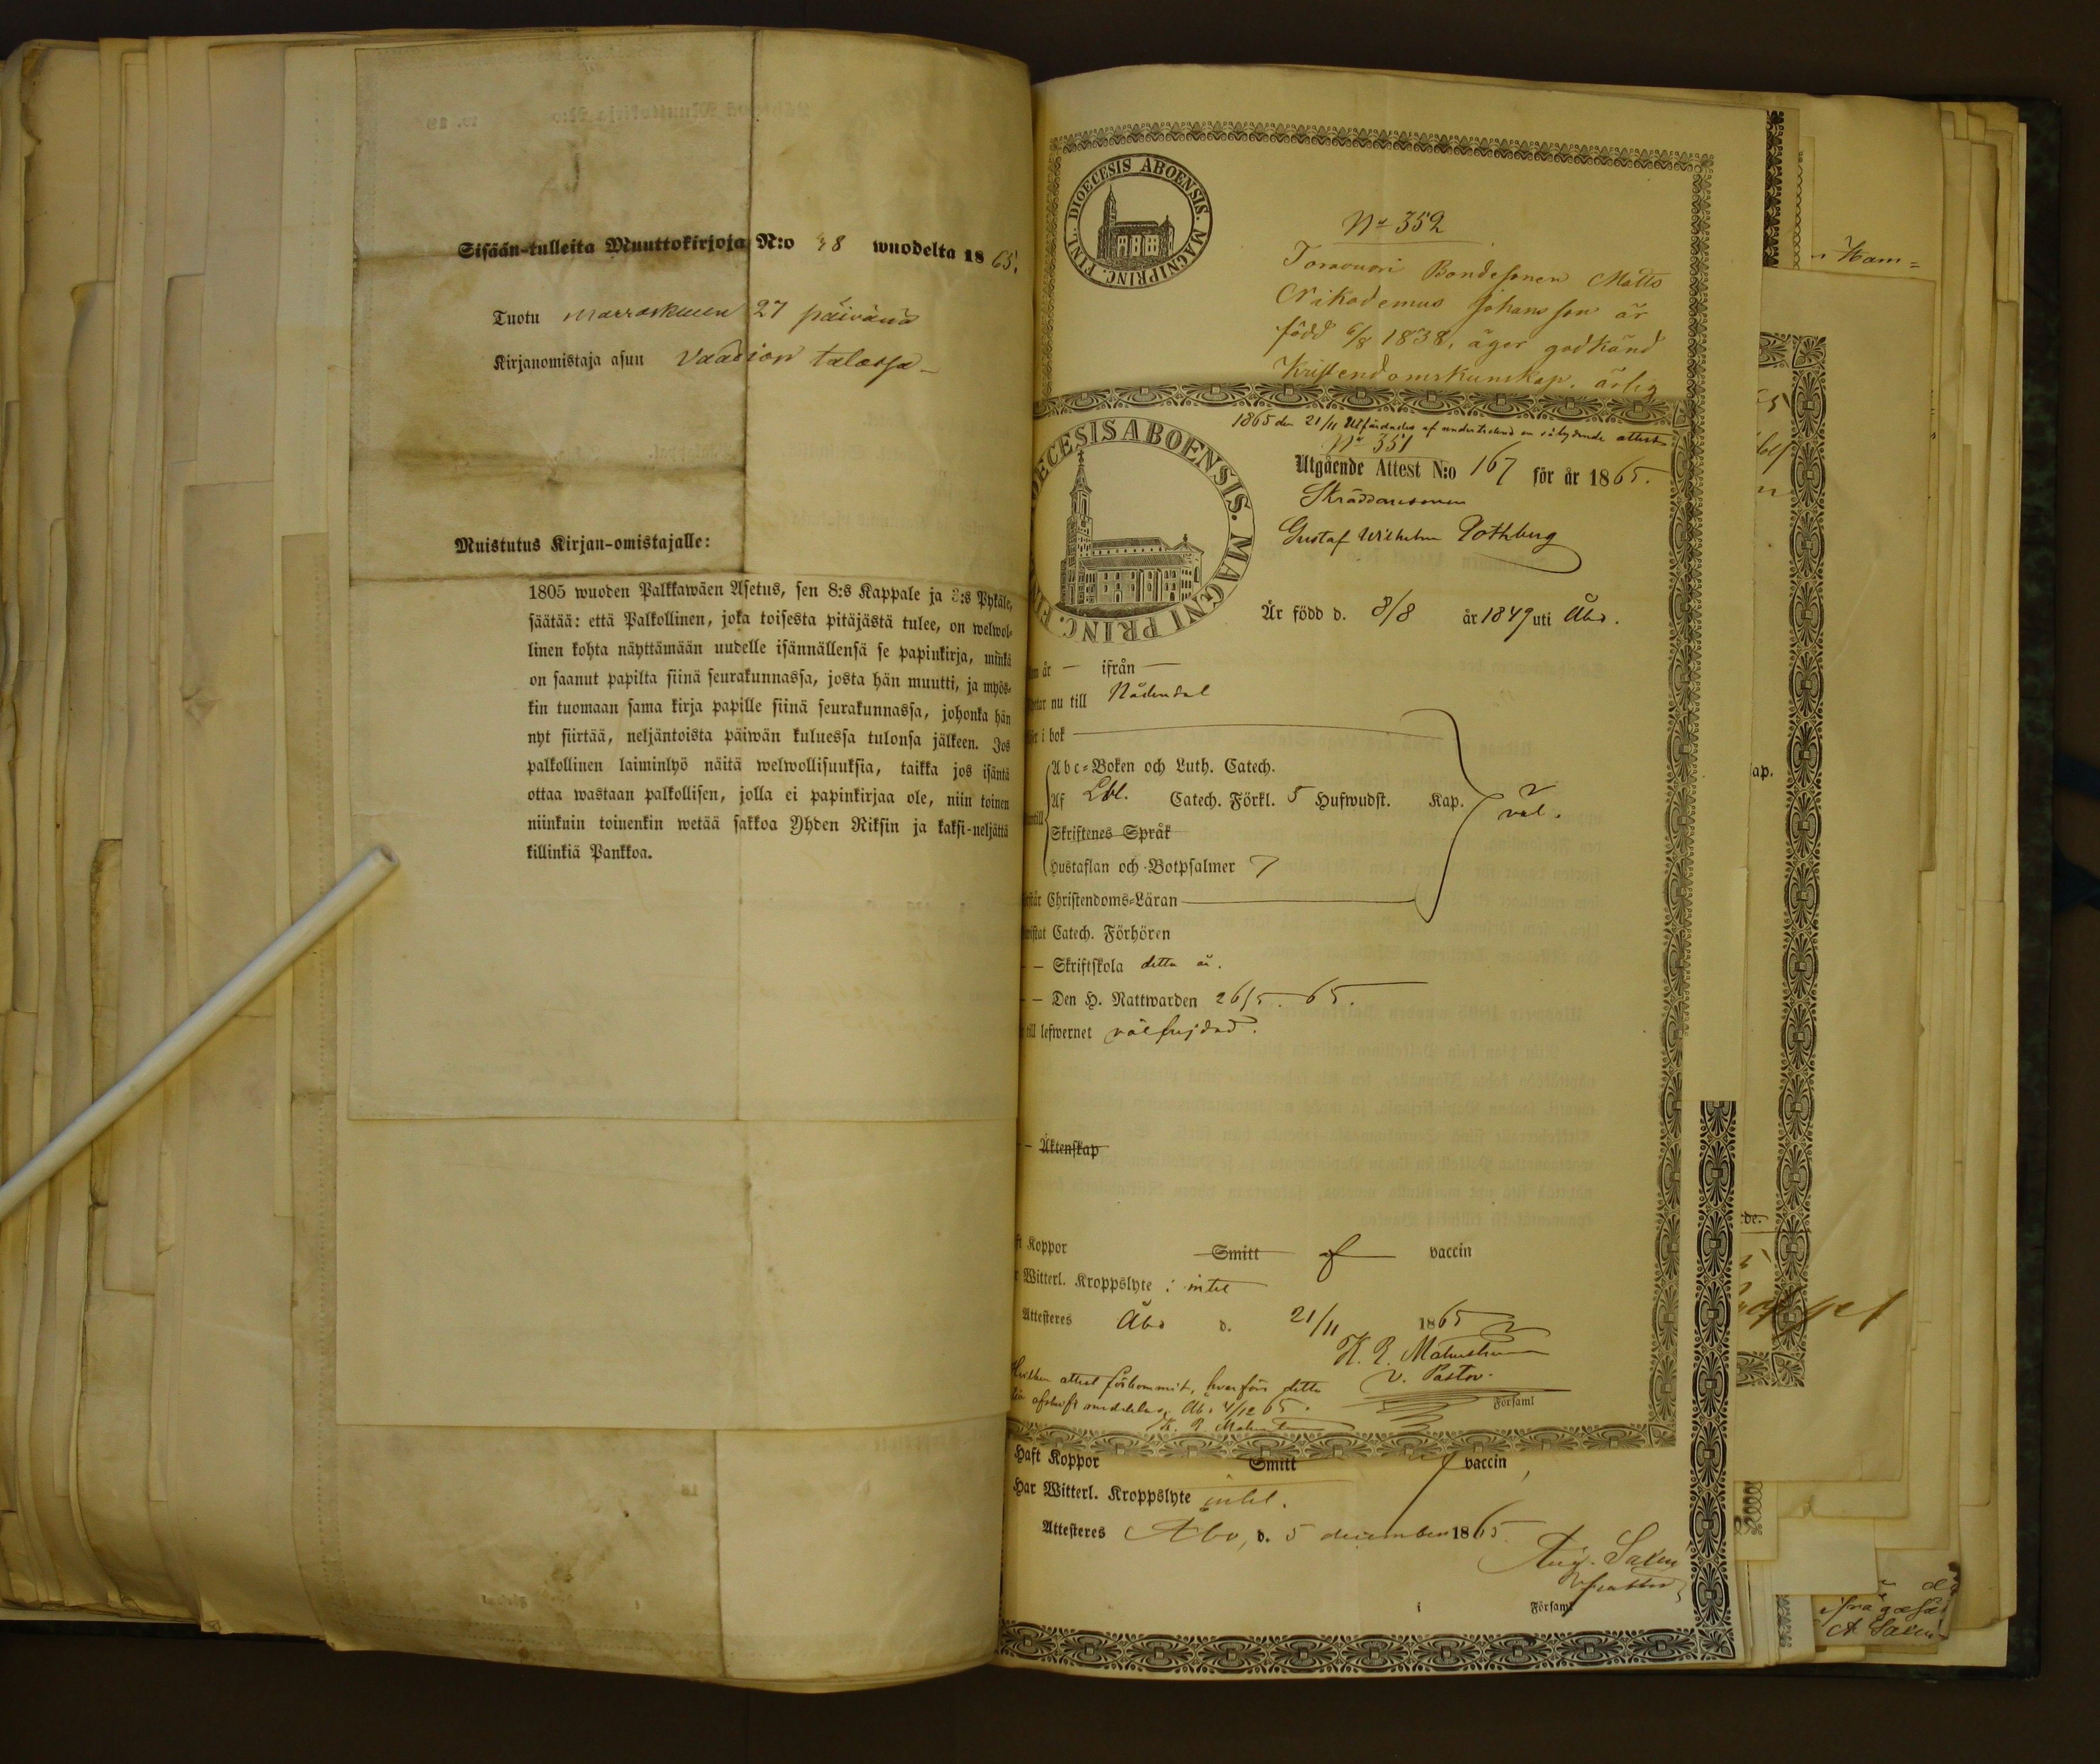 Sisään-tulleita Muuttokirjoja N:o 38 wuodelta 1865.
Tuotu marraskuun 27 päivänä
Kirjanomistaja asuu talossa
Muistutus Kirjan-omistajalle:
1805 wuoden Palkkawäen Asetus, sen 8:s Kappale ja 3:s Pykäle,
säätää: että Palkollinen, joka toisesta pitäjästä tulee, on welwol-
linen kohta näyttämään uudelle isännällensä se papinkirja, minkä
on saanut papilta siinä seurakunnassa, josta hän muutti, ja myös-
kin tuomaan sama kirja papille siinä seurakunnassa, johonka hän
nyt siirtää, neljäntoista päiwän kuluessa tulonsa jälkeen. Jos
palkollinen laiminlyö näitä welwollisuuksia, taikka jos isäntä
ottaa wastaan palkollisen, jolla ei papinkirjaa ole, niin toinen
niinkuin toinenkin wetää sakkoa Yhden Riksin ja kaksi-neljättä
killinkiä Pankkoa.
DIOECESIS ABOENSIS. MAGNI PRINC. FINL.
No 352
Bondesonen Matts
Nikodemus Johansson är
född 6/8 1838, äger godkänd
Kristendomskunskap, ärlig
DIOECESIS ABOENSIS. MAGNI PRINC.
1865 den 21/11 Utfärdades af undertecknad en sålydande attest
No 351
Utgående Attest N:o 167 för år 1865.
Skräddaresonen
Gustaf Wilhelm Rothberg
Är född d. 8/8 år 1849 uti Åbo.
år — ifrån —
nu till Nådendal
i bok
Abc-Boken och Luth. Catech.
Af Catech. Förkl. 5 Hufwudst. Kap. väl.
Skriftenes Språk
Hustaflan och Botpsalmer 7
Christendoms-Läran
Catech. Förhören
— Skriftskola detta år.
— Den H. Nattwarden 26/5. 65.
till lefwernet välfrejdad.
— Äktenskap
Koppor Smitt af vaccin
Witterl. Kroppslyte : intet
Attesteres Åbo d. 21/11 1865
v. Pastor.
Församl
attest förkommit, hvarför detta
afskrift meddelas, Åbo 4/12 65.
Haft Koppor Smitt vaccin
Har Witterl. Kroppslyte intet.
Attesteres Åbo, d. 5 december 1865
Aug. Saxén
i Församl